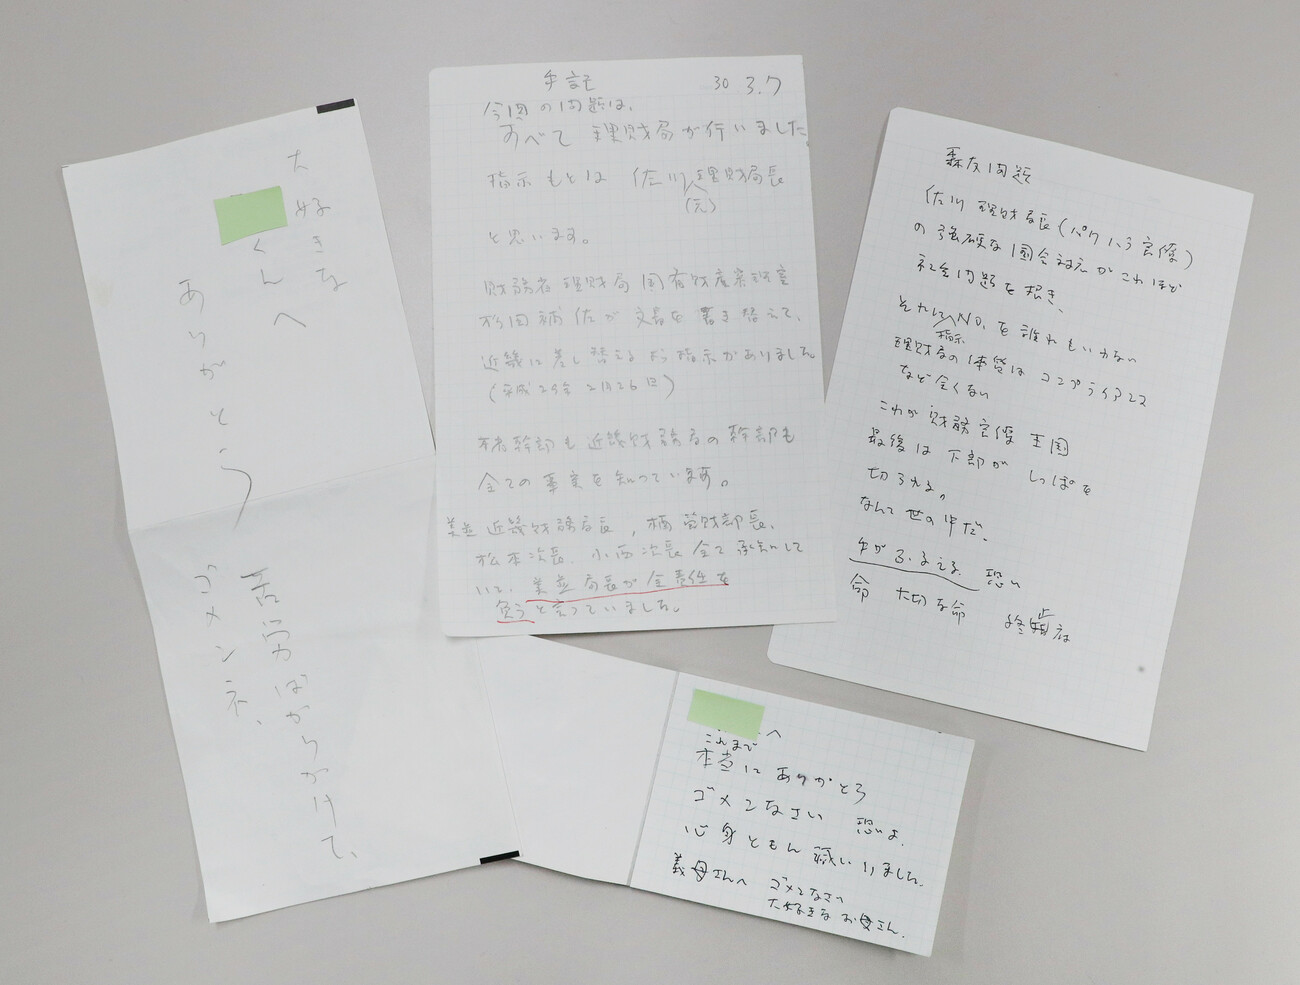 大好きな
くんへ
ありがとう
苦労ばかりかけて、
ゴメンネ、
手記 30 3.7
今回の問題は、
すべて 理財局が行いました。
指示もとは 佐川(元)理財局長
と思います。
財務省理財局 国有財産業務室
杉田補佐が 文書を書き替えて、
近畿に差し替えるよう指示がありました
(平成29年2月26日)
本省幹部も近畿財務局の幹部も
全ての事実を知っています。
美並 近畿財務局長、楠管財部長、
松本次長、小西次長 全て承知して
いて、美並局長が全責任を
負うと言っていました。
森友問題
佐川 理財局長(パワハラ官僚)
の強硬な国会対応がこれほど
社会問題を招き、
それにNO.を誰れもいわない
指示
理財局の体質は コンプライアンス
など全くない
これが財務官僚王国
最後は下部がしっぽを
切られる。
なんて世の中だ、
手がふるえる、恐い
命 大切な命 終止府
へ
これまで
本当にありがとう
ゴメンなさい 恐いよ、
心身ともに滅いりました、
義母さんへ ゴメンなさい
大好きなお母さん、